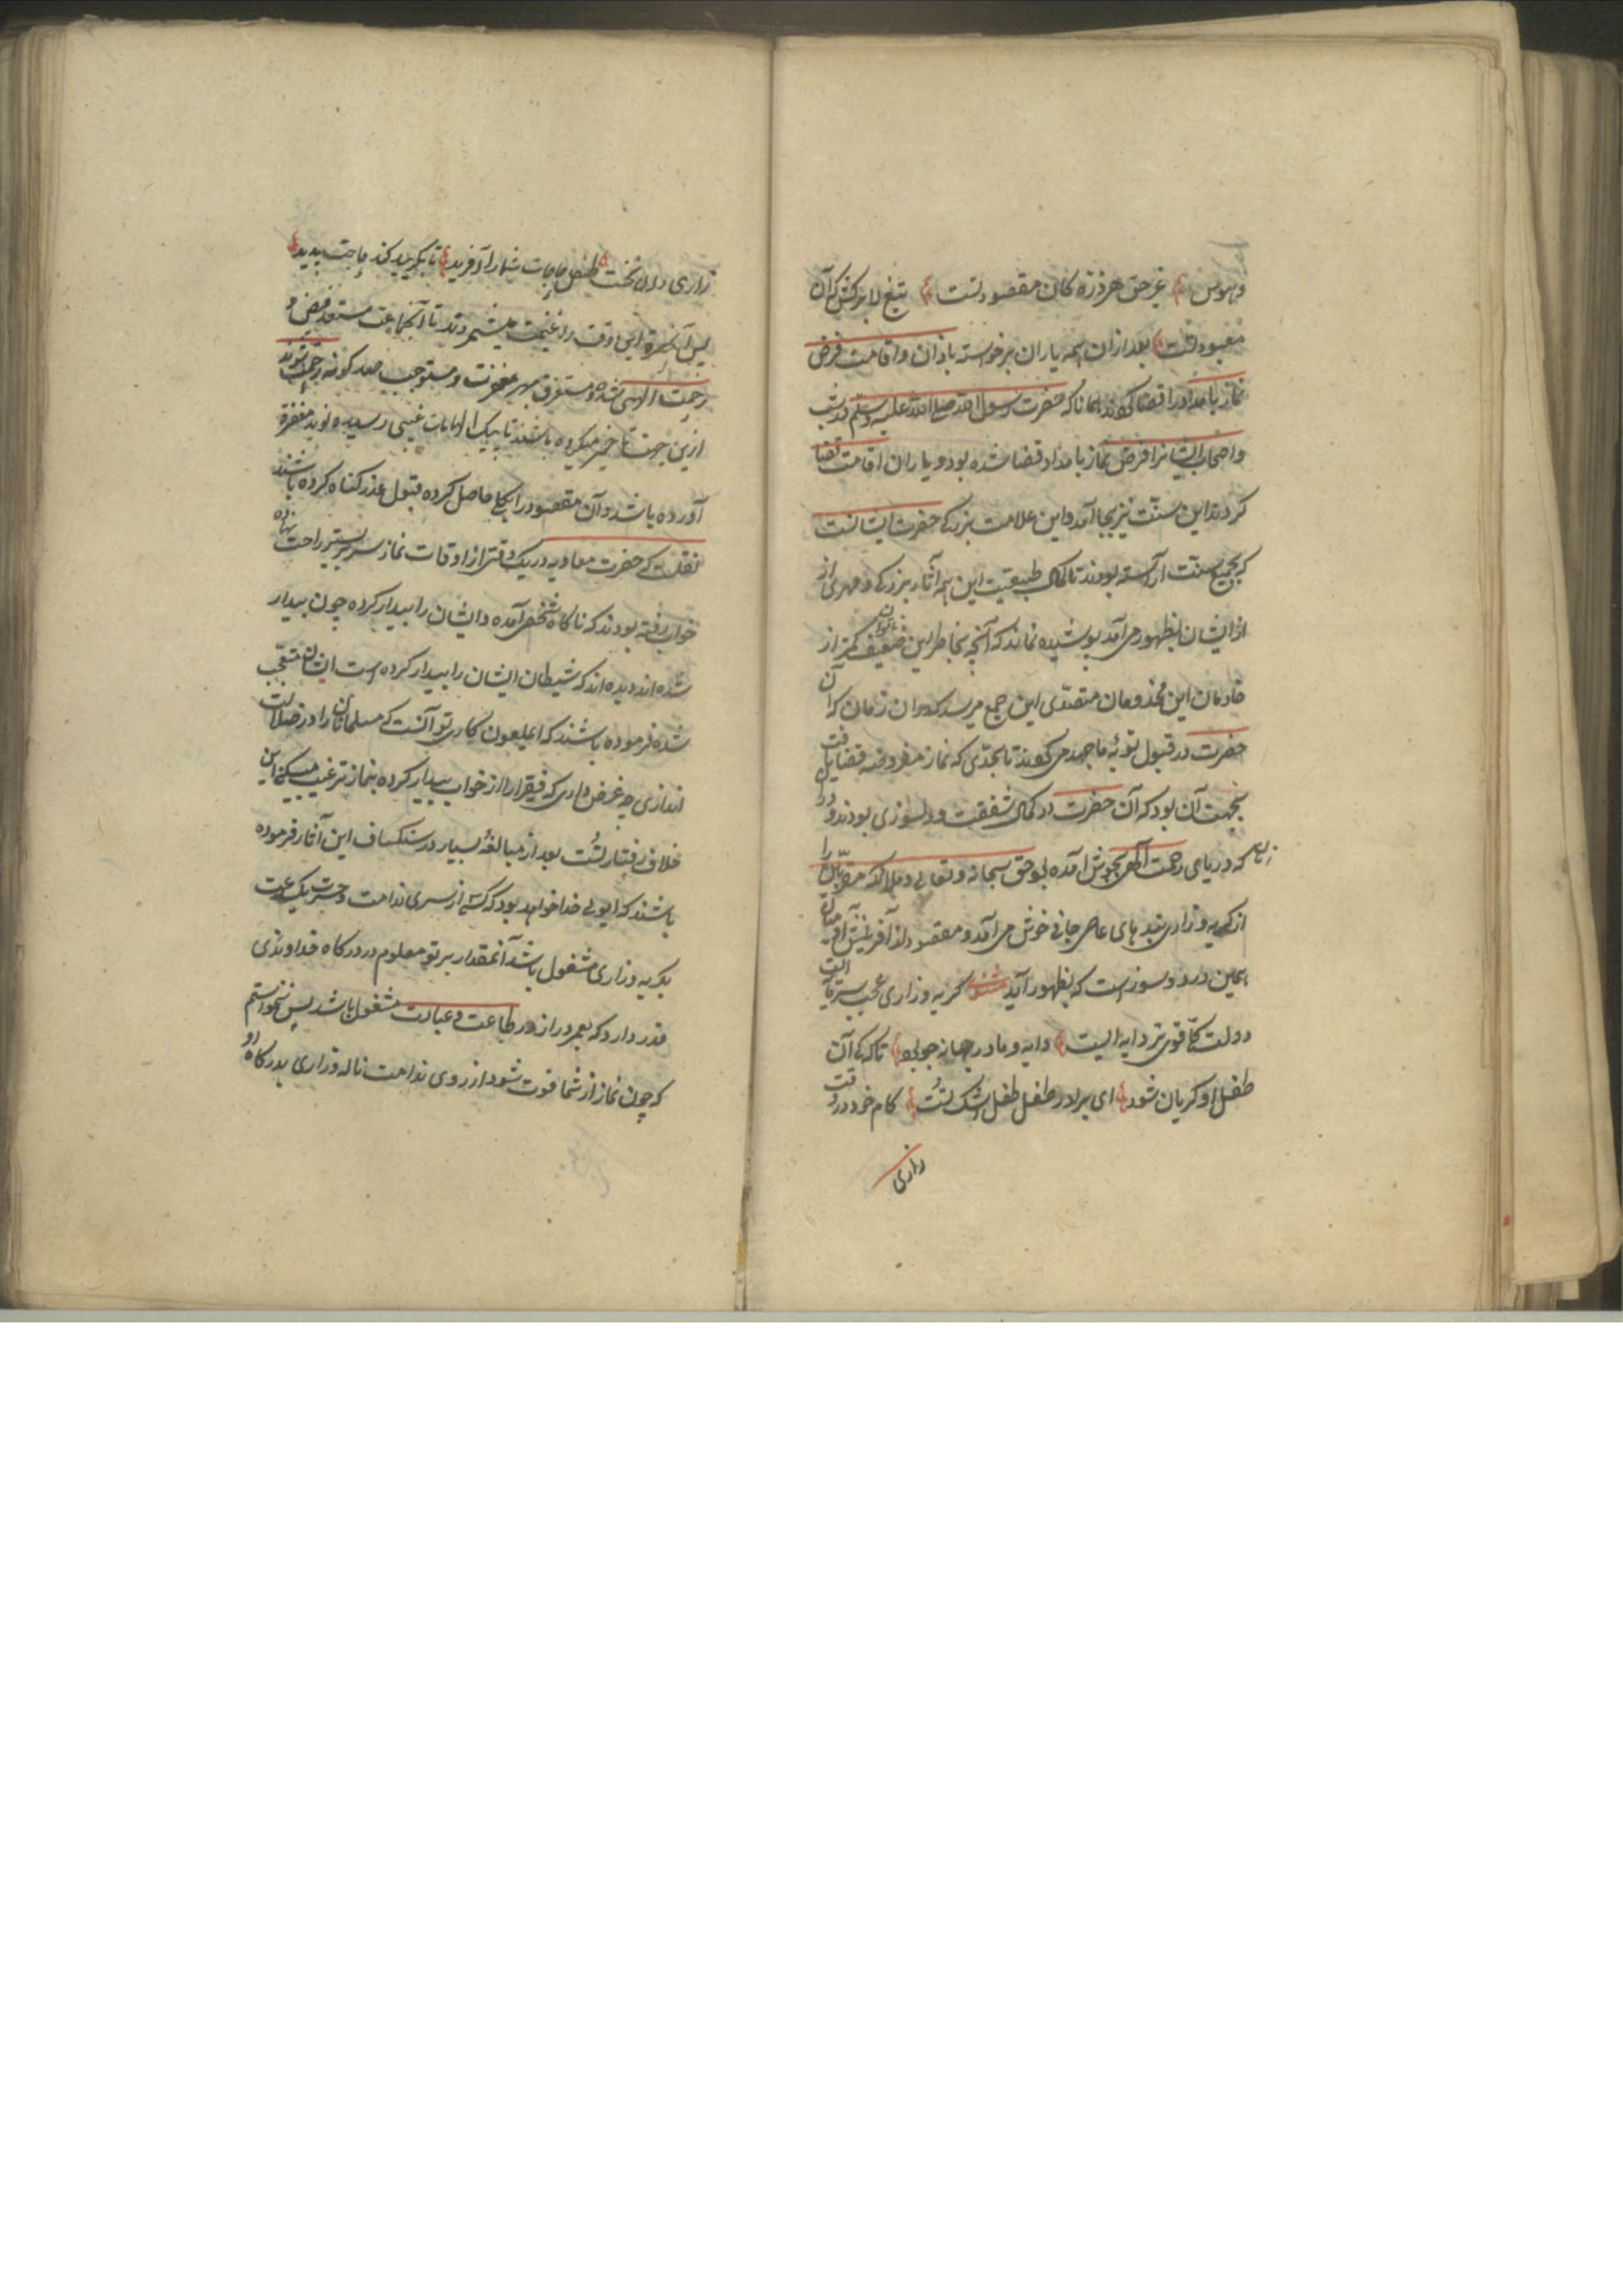 و هوس غیر حق هر ذره کان مقصود تست تیغ لا برکش که آن
معبود تست بعد ازان همه یاران برخواسته باذان و اقامت فرض
نماز بامداد را قضا کردند همانا که حضرت رسول الله صلی الله علیه وسلم در شب
و اصحاب ایشانرا فرض نماز بامداد قضا شده بود و یاران اقامت قضا
کردند این سنّت نیز بجا آمد و این علامت بزرگی حضرت ایشانست
که بجمیع سنّت آراسته بودند تا کمال طبیعت این همه آثار بزرگی و مهری از
از ایشان بظهور می آمد پوشیده نماند که آنچه بخاطر این ضعیف ناتوان کمتر از
خادمان این مخدومان متصدّی این جمع میرسد که در ان زمان که آن
حضرت در قبول توبهٔ ما جهد می کردند تا بحدّی که نماز مفروضه قضا یافت
بجهت آن بود که آن حضرت در کمال شفقت و دلسوزی بودند و در
زمان که دریای رحمت الهی بجوش آمده بود حق سبحانه و تعالی و ملائکه مقربان را
از گریه و زاری بنده های عاصی جانی خوش می آمد و مقصود از آفرینش آدمیان
همین درد و سوز است که بظهور آید مثنوی گریه و زاری عجب سرمایه ایست
دولت کلّی قوی تر دایه ایست دایه و مادر بهانه جو بود تا که کی آن
طفل او گریان شود ای برادر طفل طفل اشک تُست کام خود در وقت
زاری
زاری دان نخست طفل حاجات شما را آفرید تا بگریید کند حاجت پدید
پس آنحضرة این وقت را غنیمت میشمردند تا آنجماعت مستعد فیض و
رحمت الهی شده و مستغرق بهر مغفرت و مستوجب صد گونه رحمت شوند
ازین جهت تاخیر میکرده باشند تا پیک الهامات غیبی رسیده نوید مغفرة
آورده باشد و آن مقصود را بکلی حاصل کرده قبول عذر گناه کرده باشند
نقلست که حضرت معاویه در یک وقتی از اوقات نماز سر بر بستر راحت نهاده
خواب رفته بودند که ناگاه شخصی آمده و ایشان را بیدار کرده چون بیدار
شده اند دیده اند که شیطان ایشان را بیدار کرده است ایشان متعجّب
شده فرموده باشند که ای ملعون کار تو آنست که مسلمانان را در ضلالت
اندازی چه غرض داری که فقیر را از خواب بیدار کرده بنماز ترغیب میکنی این
خلاف رفتار تُست بعد از مبالغهٔ بسیار در ستکساف این آثار فرموده
باشند که ایولی خدا خواهد بود که کسی از سری ندامت و حسرت یک ساعت
بگریه و زاری مشغول باشد آنمقدار بر تو معلوم در درگاه خداوندی
قدر دارد که بعمر دراز در طاعت و عبادت مشغول باشد پس نخواستم
که چون نماز از شما فوت شود از روی ندامت ناله و زاری بدرگاه او